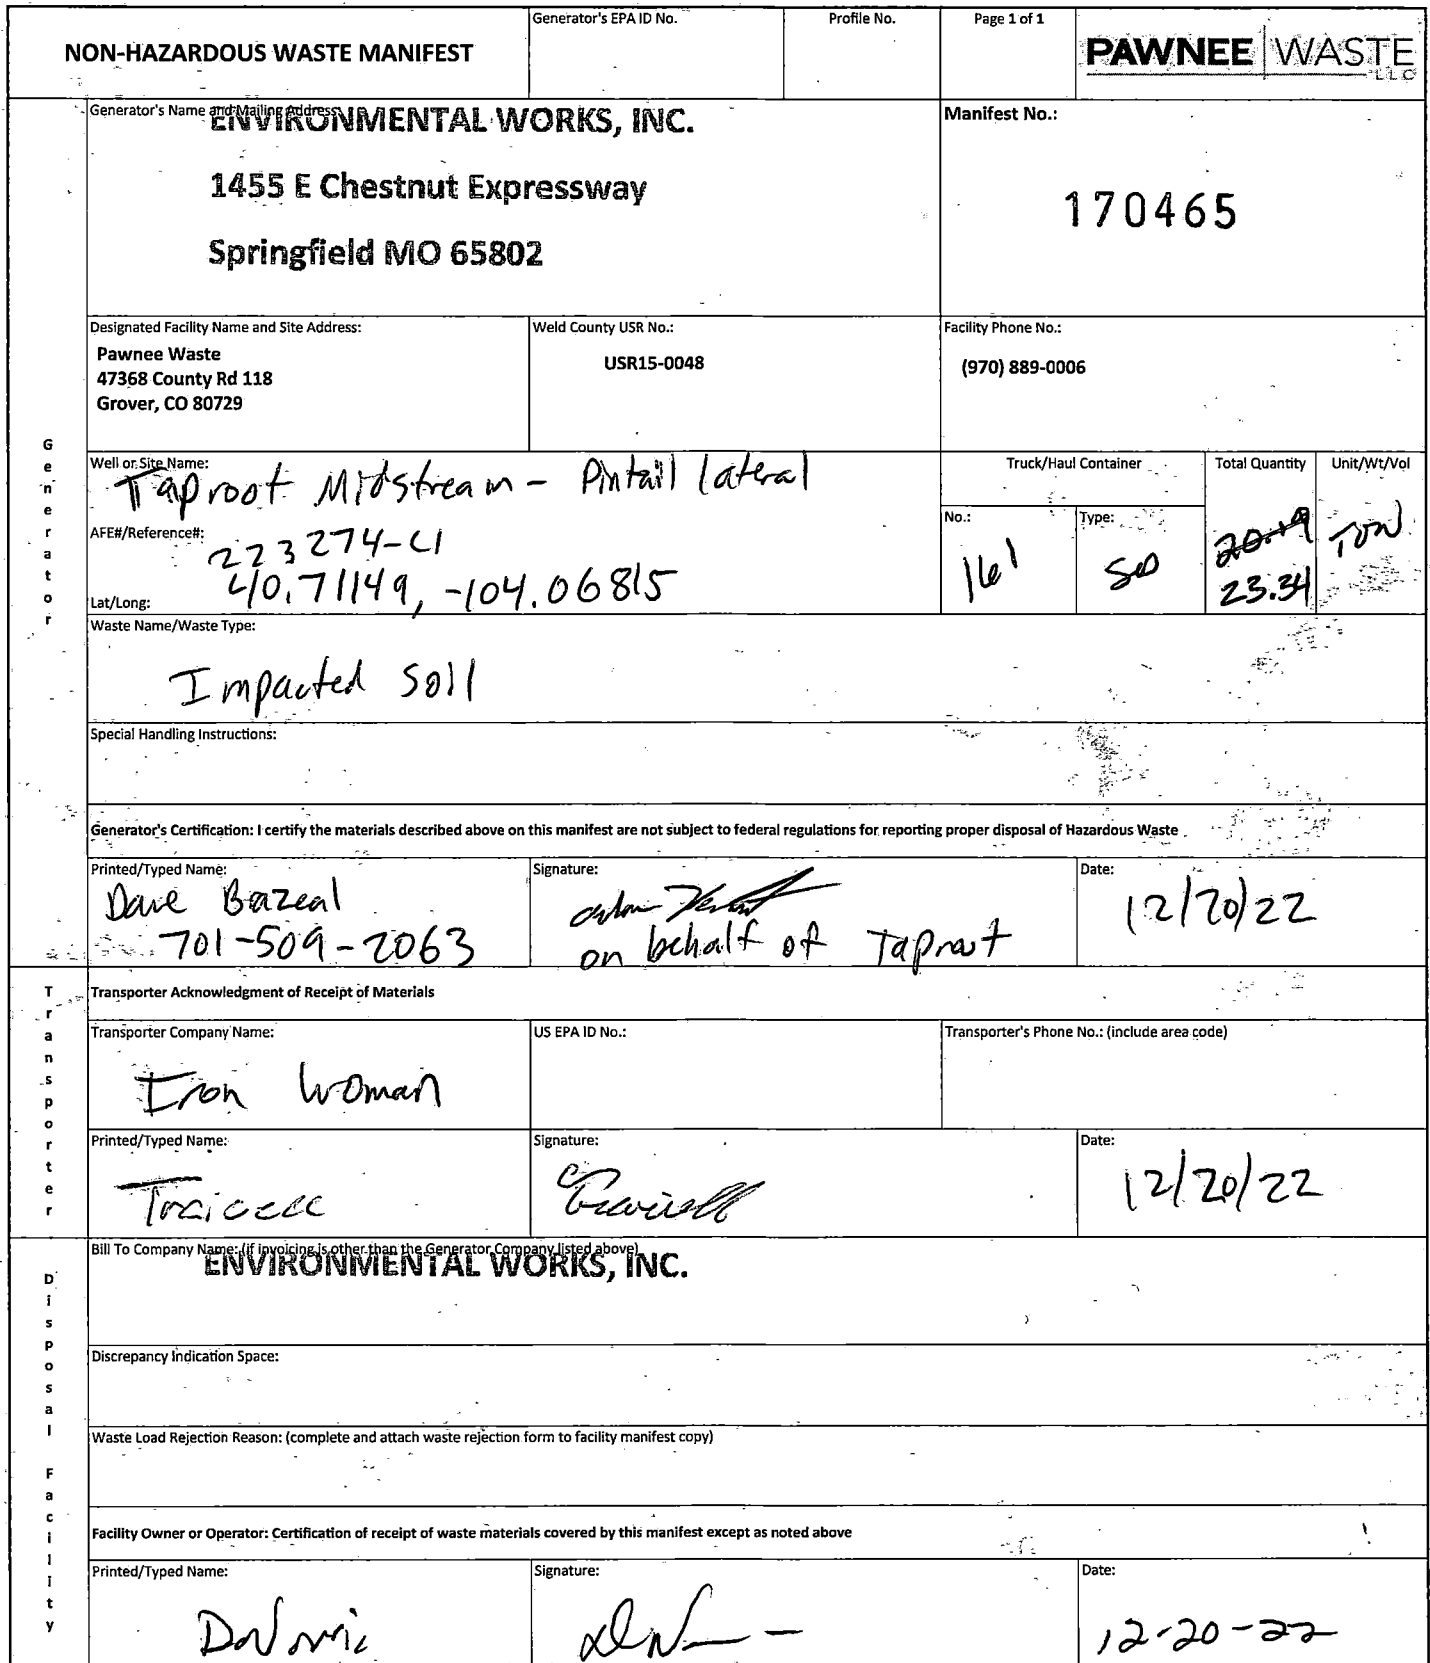 NON-HAZARDOUS WASTE MANIFEST
Generator's EPA ID No.
Profile No.
Page 1 of 1
PAWNEE WASTE
LLC
Generator's Name and Mailing Address:
ENVIRONMENTAL WORKS, INC.
1455 E Chestnut Expressway
Springfield MO 65802
Manifest No.:
170465
Designated Facility Name and Site Address:
Pawnee Waste
47368 County Rd 118
Grover, CO 80729
Weld County USR No.:
USR15-0048
Facility Phone No.:
(970) 889-0006
Generator
Well or Site Name:
Taproot Midstream - Pintail lateral
AFE#/Reference#:
223274-C1
Lat/Long:
40.71149, -104.06815
Truck/Haul Container
No.:
161
Type:
SD
Total Quantity
20.19
23.34
Unit/Wt/Vol
TON
Waste Name/Waste Type:
Impacted Soil
Special Handling Instructions:
Generator's Certification: I certify the materials described above on this manifest are not subject to federal regulations for reporting proper disposal of Hazardous Waste
Printed/Typed Name:
Dave Bazeal
701-509-2063
Signature:
on behalf of Taproot
Date:
12/20/22
Transporter
Transporter Acknowledgment of Receipt of Materials
Transporter Company Name:
Iron Woman
US EPA ID No.:
Transporter's Phone No.: (include area code)
Printed/Typed Name:
Signature:
Date:
12/20/22
Disposal Facility
Bill To Company Name: (if invoicing is other than the Generator Company listed above)
ENVIRONMENTAL WORKS, INC.
Discrepancy Indication Space:
Waste Load Rejection Reason: (complete and attach waste rejection form to facility manifest copy)
Facility Owner or Operator: Certification of receipt of waste materials covered by this manifest except as noted above
Printed/Typed Name:
Signature:
Date:
12-20-22